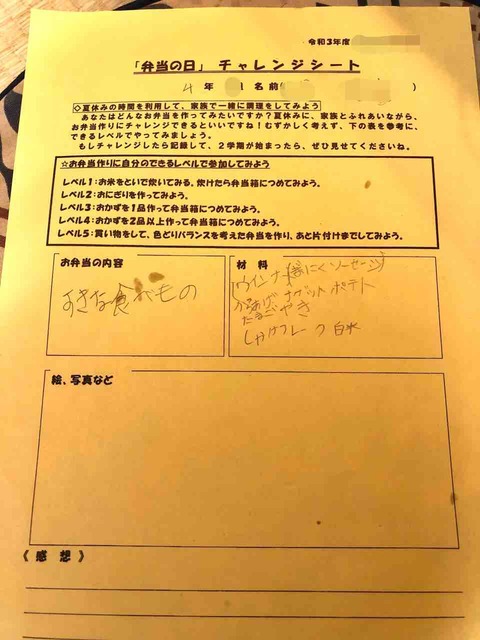 令和3年度
「弁当の日」チャレンジシート
4年 名前
◇夏休みの時間を利用して、家族で一緒に調理をしてみよう
あなたはどんなお弁当を作ってみたいですか?夏休みに、家族とふれあいながら、
お弁当作りにチャレンジできるといいですね!むずかしく考えず、下の表を参考に、
できるレベルでやってみましょう。
もしチャレンジしたら記録して、2学期が始まったら、ぜひ見せてくださいね。
☆お弁当作りに自分のできるレベルで参加してみよう
レベル1:お米をといで炊いてみる。炊けたら弁当箱につめてみよう。
レベル2:おにぎりを作ってみよう。
レベル3:おかずを1品作って弁当箱につめてみよう。
レベル4:おかずを2品以上作って弁当箱につめてみよう。
レベル5:買い物をして、色どりバランスを考えた弁当を作り、あと片付けまでしてみよう。
お弁当の内容
すきな食べもの
材料
ウインナー(ぎょにくソーセージ)
からあげ ナゲット ポテト
たまごやき
しゃけフレーク 白米
絵、写真など
《感想》